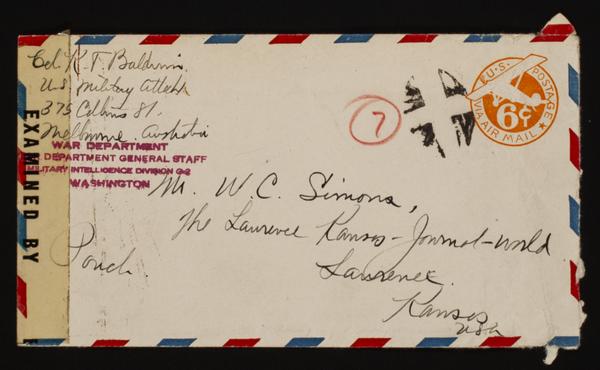 Col. K. F. Baldwin
U.S. Military Attaché
375 Collins St.
Melbourne, Australia
WAR DEPARTMENT
DEPARTMENT GENERAL STAFF
MILITARY INTELLIGENCE DIVISION G-2
WASHINGTON
EXAMINED BY
7
U.S. POSTAGE
6¢
VIA AIR MAIL
Mr. W. C. Simons,
The Lawrence Kansas-Journal-World
Lawrence.
Kansas
USA
Pouch.